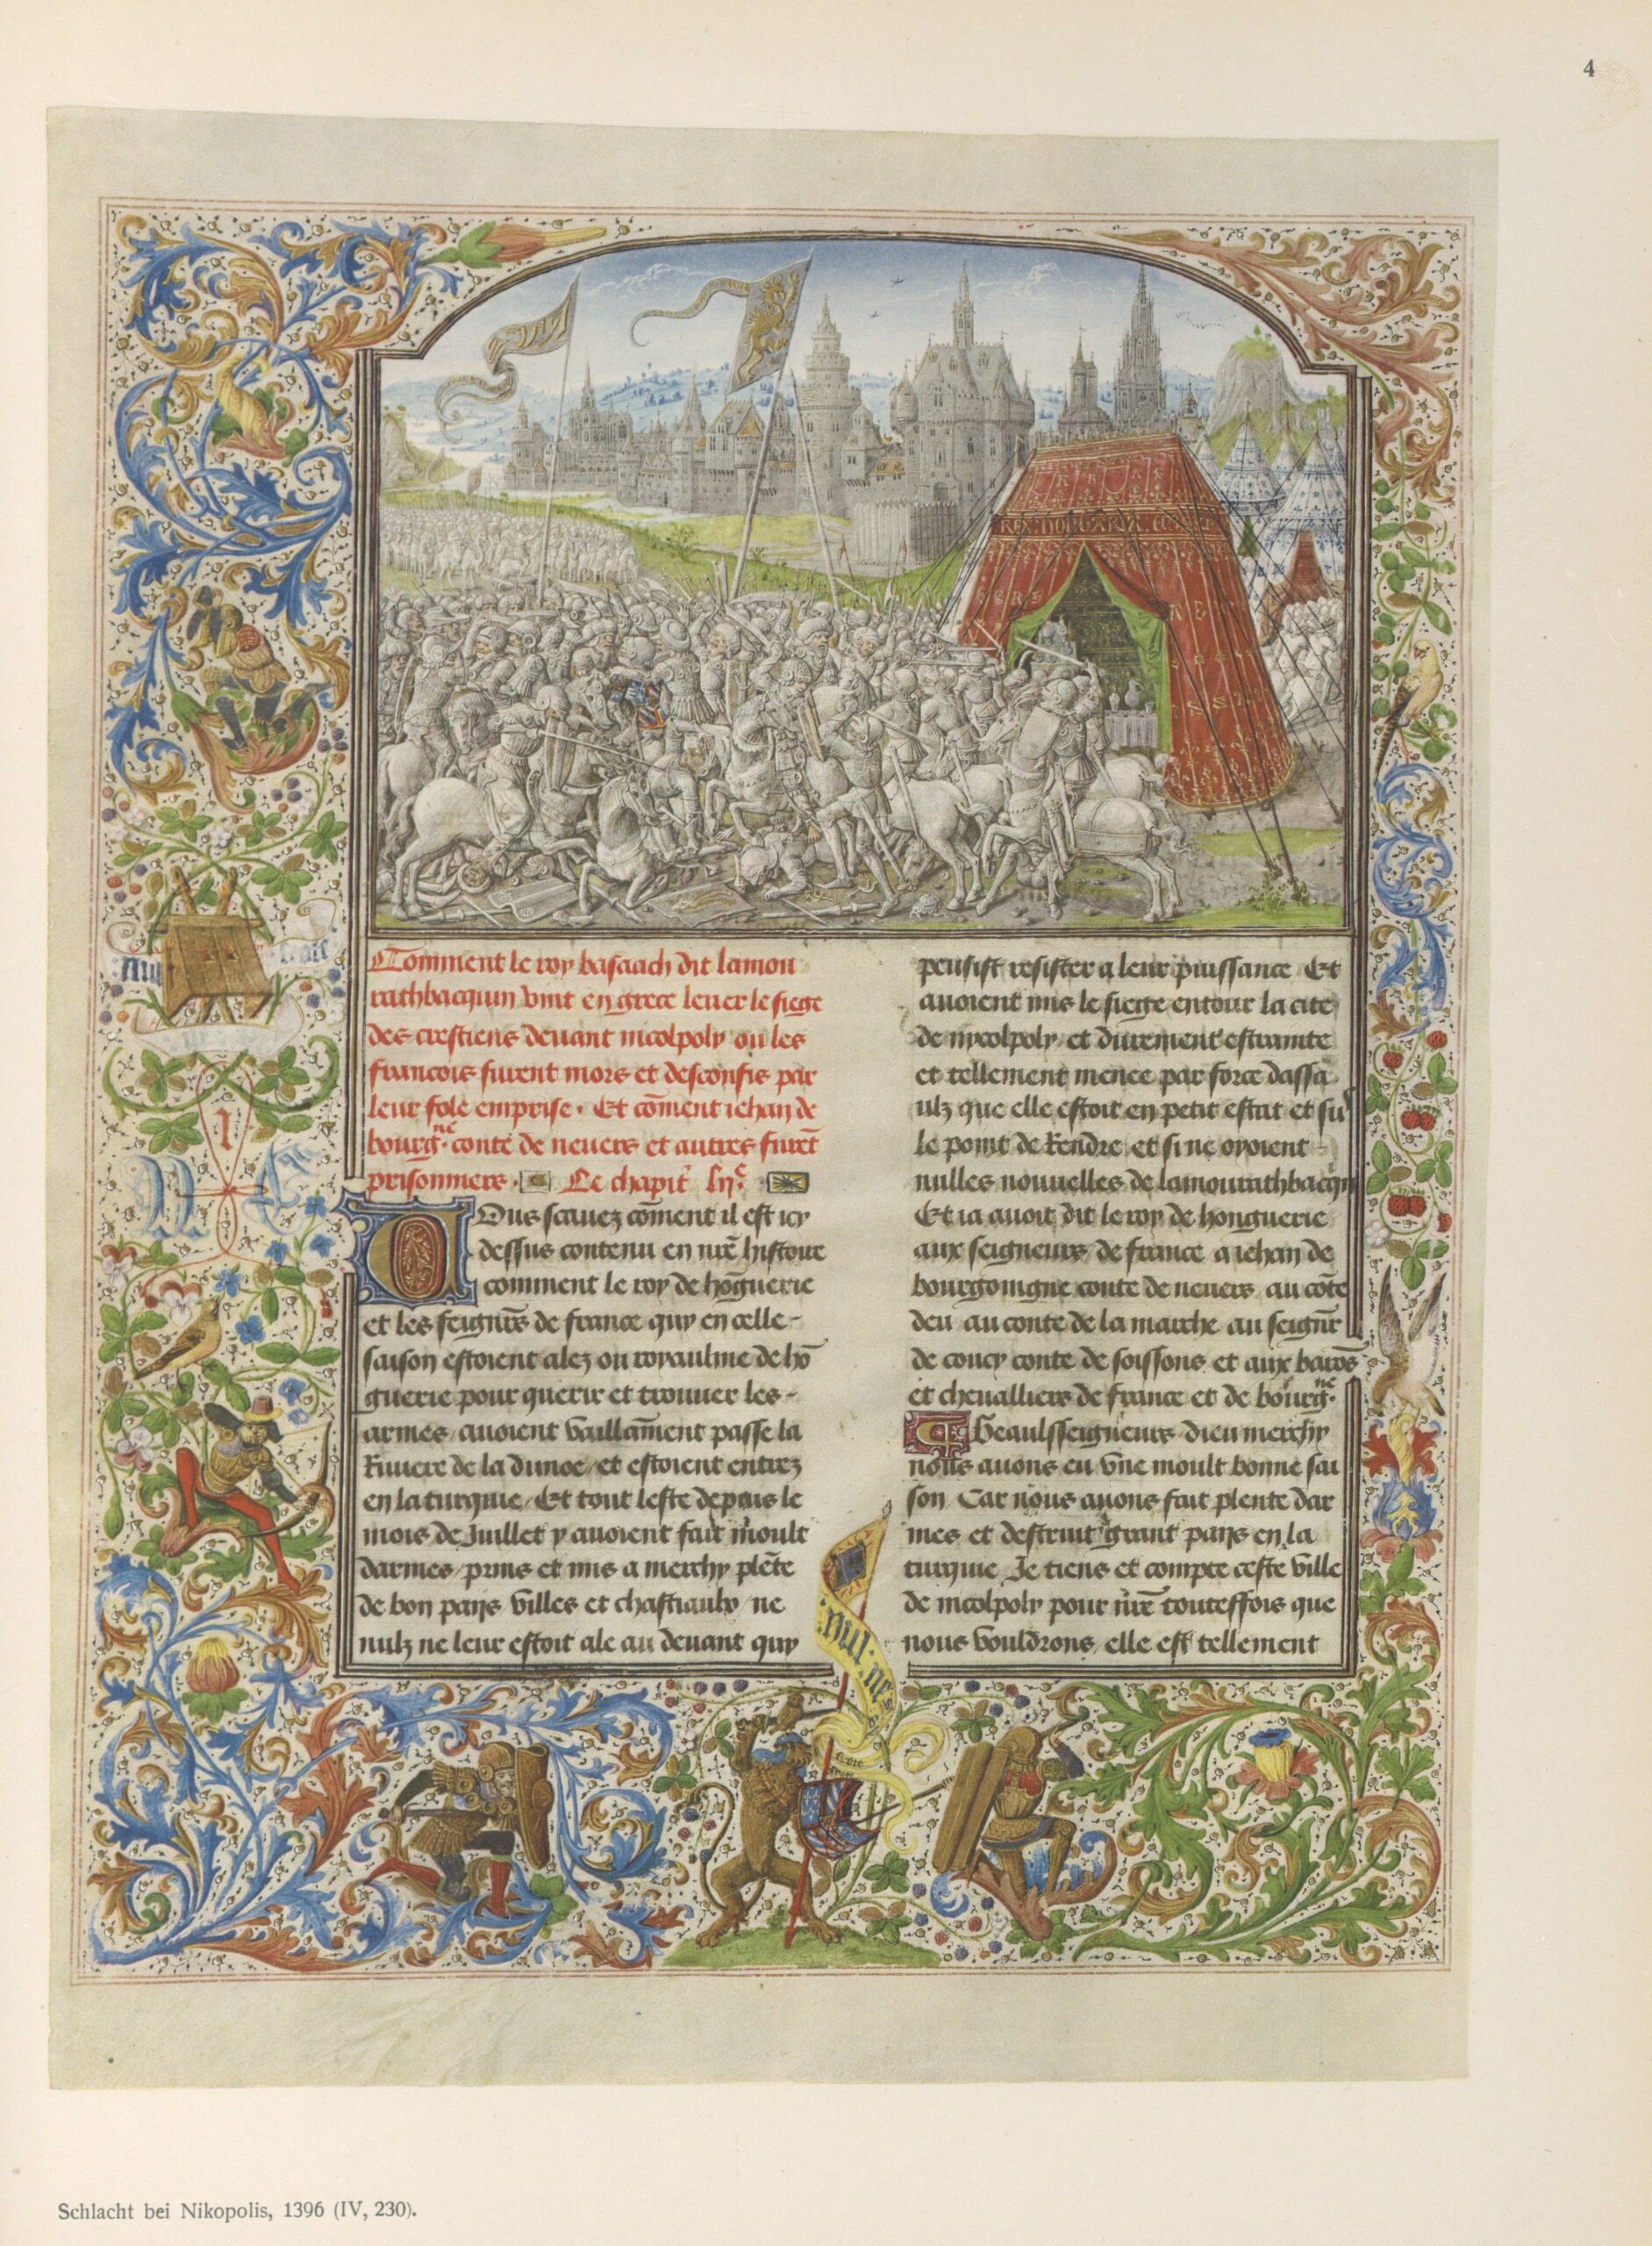 4
Comment le roy basaach dit lamou
rathbacquin vint en grece leuer le siege
des crestiens deuant nicolpoly ou les
francois furent mors et desconfis par
leur fole emprise. Et cōment iehan de
bourgne. conte de neuers et autres furēt
prisonniers. Le chapit
Ous scauez cōment il est icy
dessus contenu en nr̄e histoire
comment le roy de hōguerie
et les seignr̄s de france quy en celle-
saison estoient alez ou royaulme de hō
guerie pour querir et trouuer les-
armes / auoient vaillām̄ent passe la
Riuiere de la dunoe / et estoient entrez
en la turquie / Et tout leste depuis le
mois de Juillet y auoient fait moult
darmes / prins et mis a merchy plēte
de bon pays villes et chastiaulx / ne
nulz ne leur estoit ale au deuant quy
peusist resister a leur puissance Et
auoient mis le siege entour la cite
de nycolpoly / et durement estrainte
et tellement menee par force dassa
ulz que elle estoit en petit estat et sur
le point de Rendre / et si ne oyoient
nulles nouuelles de lamourathbacqn
Et ia auoit dit le roy de honguerie
aux seigneurs de france a iehan de
bourgoingne conte de neuers au cōte
deu au conte de la marche au seignr̄
de coucy conte de soissons et aux barōs
et cheualliers de france et de bourgne.
Beaulsseigneurs / dieu merchy
nous auons eu vne moult bonne sai
son Car nous auons fait plente dar
mes et destruit grant pays en la
turquie Je tiens et compte ceste ville
de nicolpoly pour nr̄e touteffois que
nous vouldrons / elle est tellement
Schlacht bei Nikopolis, 1396 (IV, 230).